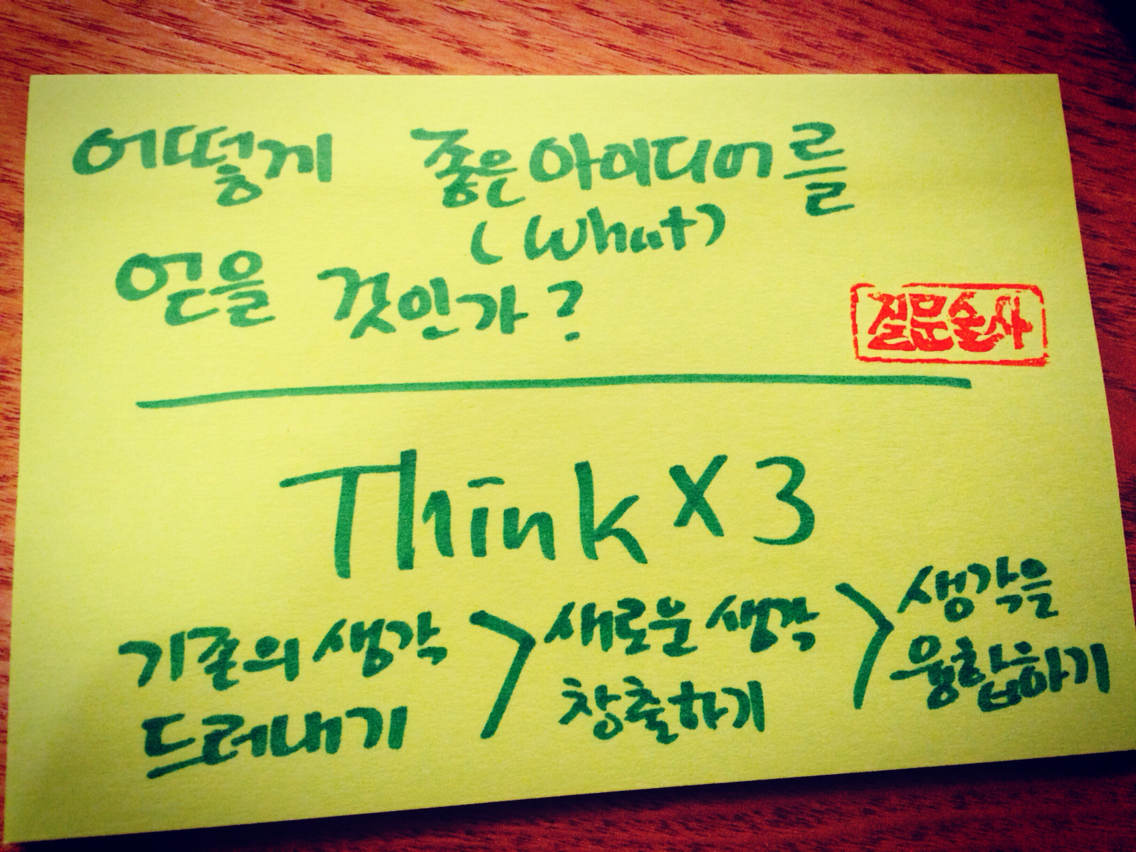 어떻게 좋은 아이디어를
(What)
얻을 것인가?
질문술사
Think X 3
기존의 생각 > 새로운 생각 > 생각을
드러내기 창출하기 융합하기